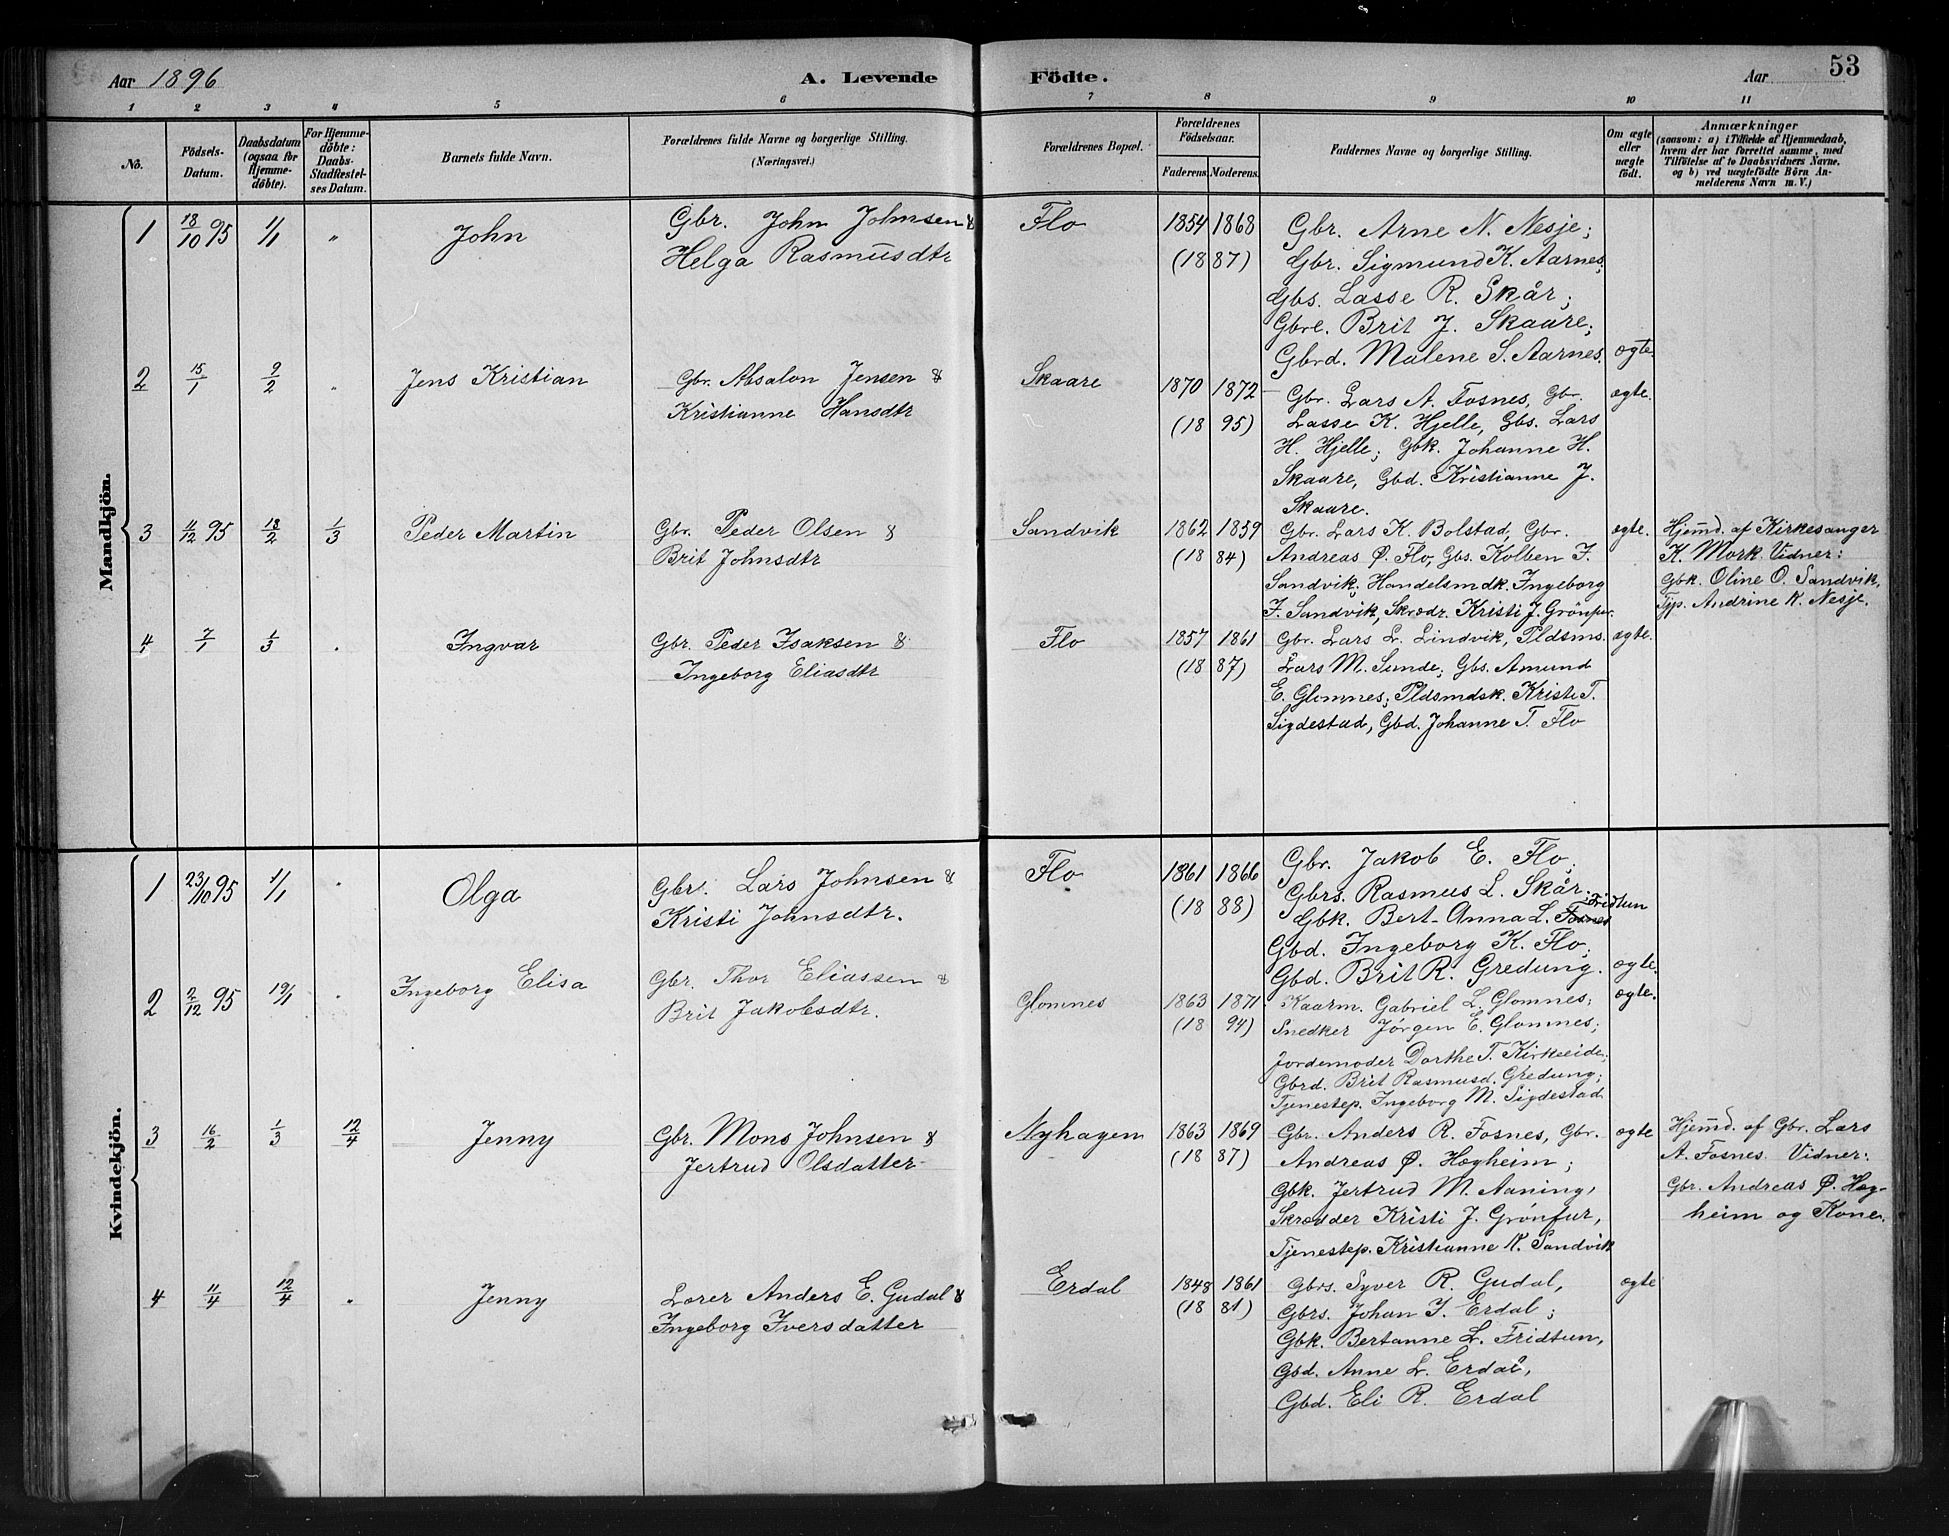 Aar 1896
A. Levende Födte.
Aar 53
1 2 3 4 5 6 7 8 9 10 11
No.
Födsels-Datum.
Daabsdatum (ogsaa for Hjemme-döbte).
For Hjemme-döbte: Daabs-Stadfæstel-ses Datum.
Barnets fulde Navn.
Forældrenes fulde Navne og borgerlige Stilling. (Næringsvei.)
Forældrenes Bopæl.
Forældrenes Födselsaar.
Faderens. Moderens.
Faddernes Navne og borgerlige Stilling.
Om ægte eller uægte födt.
Anmærkninger
(saasom: a) i Tilfælde af Hjemmedaab,
hvem der har forrettet samme, med
Tilföielse af to Daabsvidners Navne,
og b) ved uægtefödte Börn An-
melderens Navn m. V.)
Mandkjön.
1 18/10 95 1/1 " John
Gbr. John Johnsen &
Helga Rasmusdtr
Flo 1854 1868
(18 87)
Gbr. Arne N. Nesje;
Gbr. Sigmund K. Aarnes;
Gbs. Lasse R. Skår;
Gbre. Brit J. Skaare;
Gbrd. Malene S. Aarnes. ægte.
2 15/1 9/2 " Jens Kristian
Gbr. Absalon Jensen &
Kristianne Hansdtr
Skaare 1870 1872
(18 95)
Gbr. Lars A. Fosnes, Gbr. ægte.
Lasse K. Hjelle, Gbs. Lars
H. Hjelle; Gbk. Johanne H.
Skaare, Gbd. Kristianne J.
Skaare.
3 11/12 95 18/2 1/3 Peder Martin
Gbr. Peder Olsen &
Brit Johnsdtr
Sandvik 1862 1859
(18 84)
Gbr. Lars K. Bolstad, Gbr. ægte.
Andreas Ø. Flo, Gbs. Kolben J.
Sandvik; Handelsmdk. Ingeborg
J. Sandvik, Skrædr. Kristi J. Grönfur.
Hjemd. af Kirkesanger
K. Mork. Vidner:
Gbk. Oline O. Sandvik,
Tjp. Andrine K. Nesje.
4 7/1 1/3 " Ingvar
Gbr. Peder Isaksen &
Ingeborg Eliasdtr
Flo 1857 1861
(18 87)
Gbr. Lars L. Lindvik, Pldsms. ægte.
Lars M. Sunde, Gbs. Amund
E. Glomnes; Pldsmdsk. Kristi T.
Sigdestad, Gbd. Johanne T. Flo
Kvindekjön.
1 23/10 95 1/1 " Olga
Gbr. Lars Johnsen &
Kristi Johnsdtr.
Flo 1861 1866
(18 88)
Gbr. Jakob E. Flo;
Gbrs. Rasmus L. Skår;
Gbk. Bert-Anna L. Fosnes Fridtun
Gbd. Ingeborg K. Flo;
Gbd. Brit R. Gredung. ægte.
2 2/12 95 19/1 " Ingeborg Elisa
Gbr. Thor Eliassen &
Brit Jakobsdtr.
Glomnes 1863 1871
(18 94)
Kaarm. Gabriel L. Glomnes; ægte.
Snedker Jörgen E. Glomnes;
Jordemoder Dorthe T. Kirkeeide;
Gbrd. Brit Rasmusd. Gredung;
Tjenestep. Ingeborg M. Sigdestad
3 16/2 1/3 12/4 Jenny
Gbr. Mons Johnsen &
Jertrud Olsdatter
Nyhagen 1863 1869
(18 87)
Gbr. Anders R. Fosnes, Gbr. ægte
Andreas Ø. Hegheim;
Gbk. Jertrud M. Aaning,
Skrædder Kristi J. Grönfur,
Tjenestep. Kristianne K. Sandvik
Hjemd. af Gbr. Lars
A. Fosnes. Vidner:
Gbr. Andreas Ø. Heg-
heim og Kone.
4 11/4 12/4 " Jenny
Lærer Anders E. Gudal &
Ingeborg Iversdatter
Erdal 1848 1861
(18 81)
Gbrs. Syver R. Gudal, ægte
Gbrs. Johan I. Erdal;
Gbk. Bertanne L. Fridtun,
Gbd. Anne L. Erdal,
Gbd. Eli R. Erdal